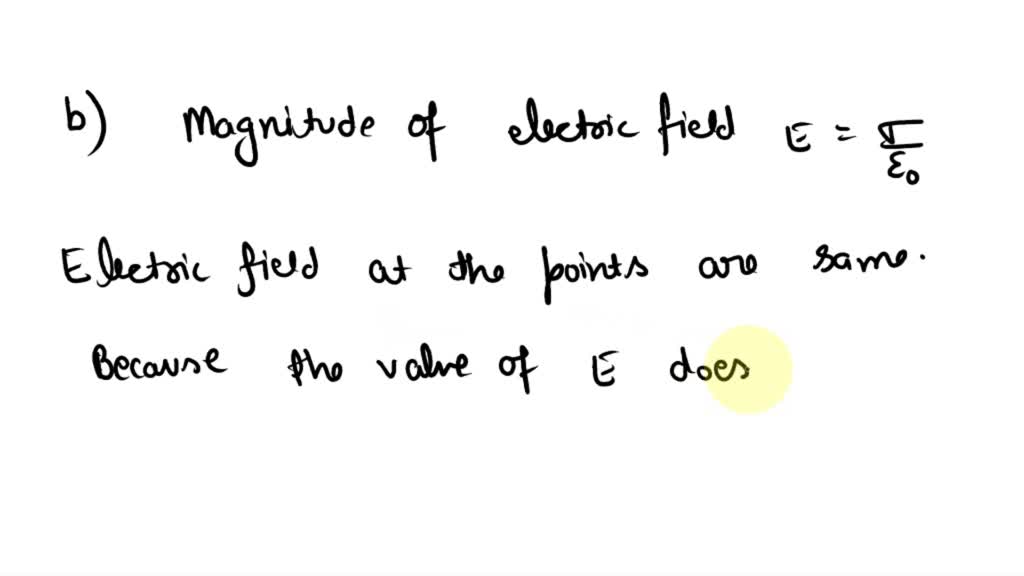 b) Magnitude of electric field E = σ/ε₀
Electric field at the points are same.
Because the value of E does